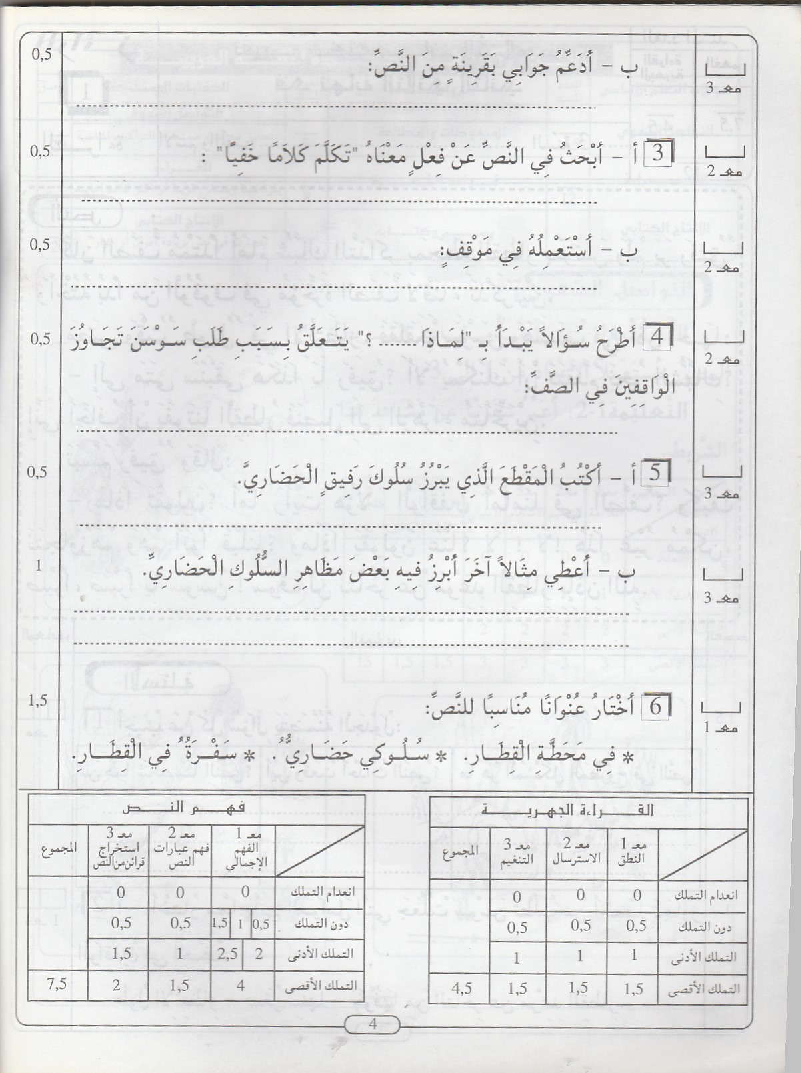 ب - أُدَعِّمُ جَوَابِي بِقَرِينَةٍ مِنَ النَّصِّ:
0,5
معـ 3
3 أ - أَبْحَثُ فِي النَّصِّ عَنْ فِعْلٍ مَعْنَاهُ "تَكَلَّمَ كَلَامًا خَفِيًّا" :
0,5
معـ 2
ب - أَسْتَعْمِلُهُ فِي مَوْقِفٍ:
0,5
معـ 2
4 أَطْرَحُ سُؤَالاً يَبْدَأُ بِـ "لِمَاذَا ........ ؟" يَتَعَلَّقُ بِسَبَبِ طَلَبِ سَوْسَنَ تَجَاوُزَ
0,5
معـ 2
الْوَاقِفِينَ فِي الصَّفِّ:
5 أ - أَكْتُبُ الْمَقْطَعَ الَّذِي يُبْرِزُ سُلُوكَ رَفِيقٍ الْحَضَارِيَّ.
0,5
معـ 3
ب - أُعْطِي مِثَالاً آخَرَ أُبْرِزُ فِيهِ بَعْضَ مَظَاهِرِ السُّلُوكِ الْحَضَارِيِّ.
1
معـ 3
6 أَخْتَارُ عُنْوَانًا مُنَاسِبًا لِلنَّصِّ:
1,5
معـ 1
* فِي مَحَطَّةِ الْقِطَارِ. * سُلُوكِي حَضَارِيٌّ. * سَفْرَةٌ فِي الْقِطَارِ.
القـــراءة الجهريـــة
معـ 1 النطق معـ 2 الاسترسال معـ 3 التنغيم المجموع
انعدام التملك 0 0 0
دون التملك 0,5 0,5 0,5
التملك الأدنى 1 1 1
التملك الأقصى 1,5 1,5 1,5 4,5
فهـــم النـــص
معـ 1 الفهم الإجمالي معـ 2 فهم عبارات النص معـ 3 استخراج قرائن من النص المجموع
انعدام التملك 0 0 0
دون التملك 0,5 1 1,5 0,5 0,5
التملك الأدنى 2 2,5 1 1,5
التملك الأقصى 4 1,5 2 7,5
4